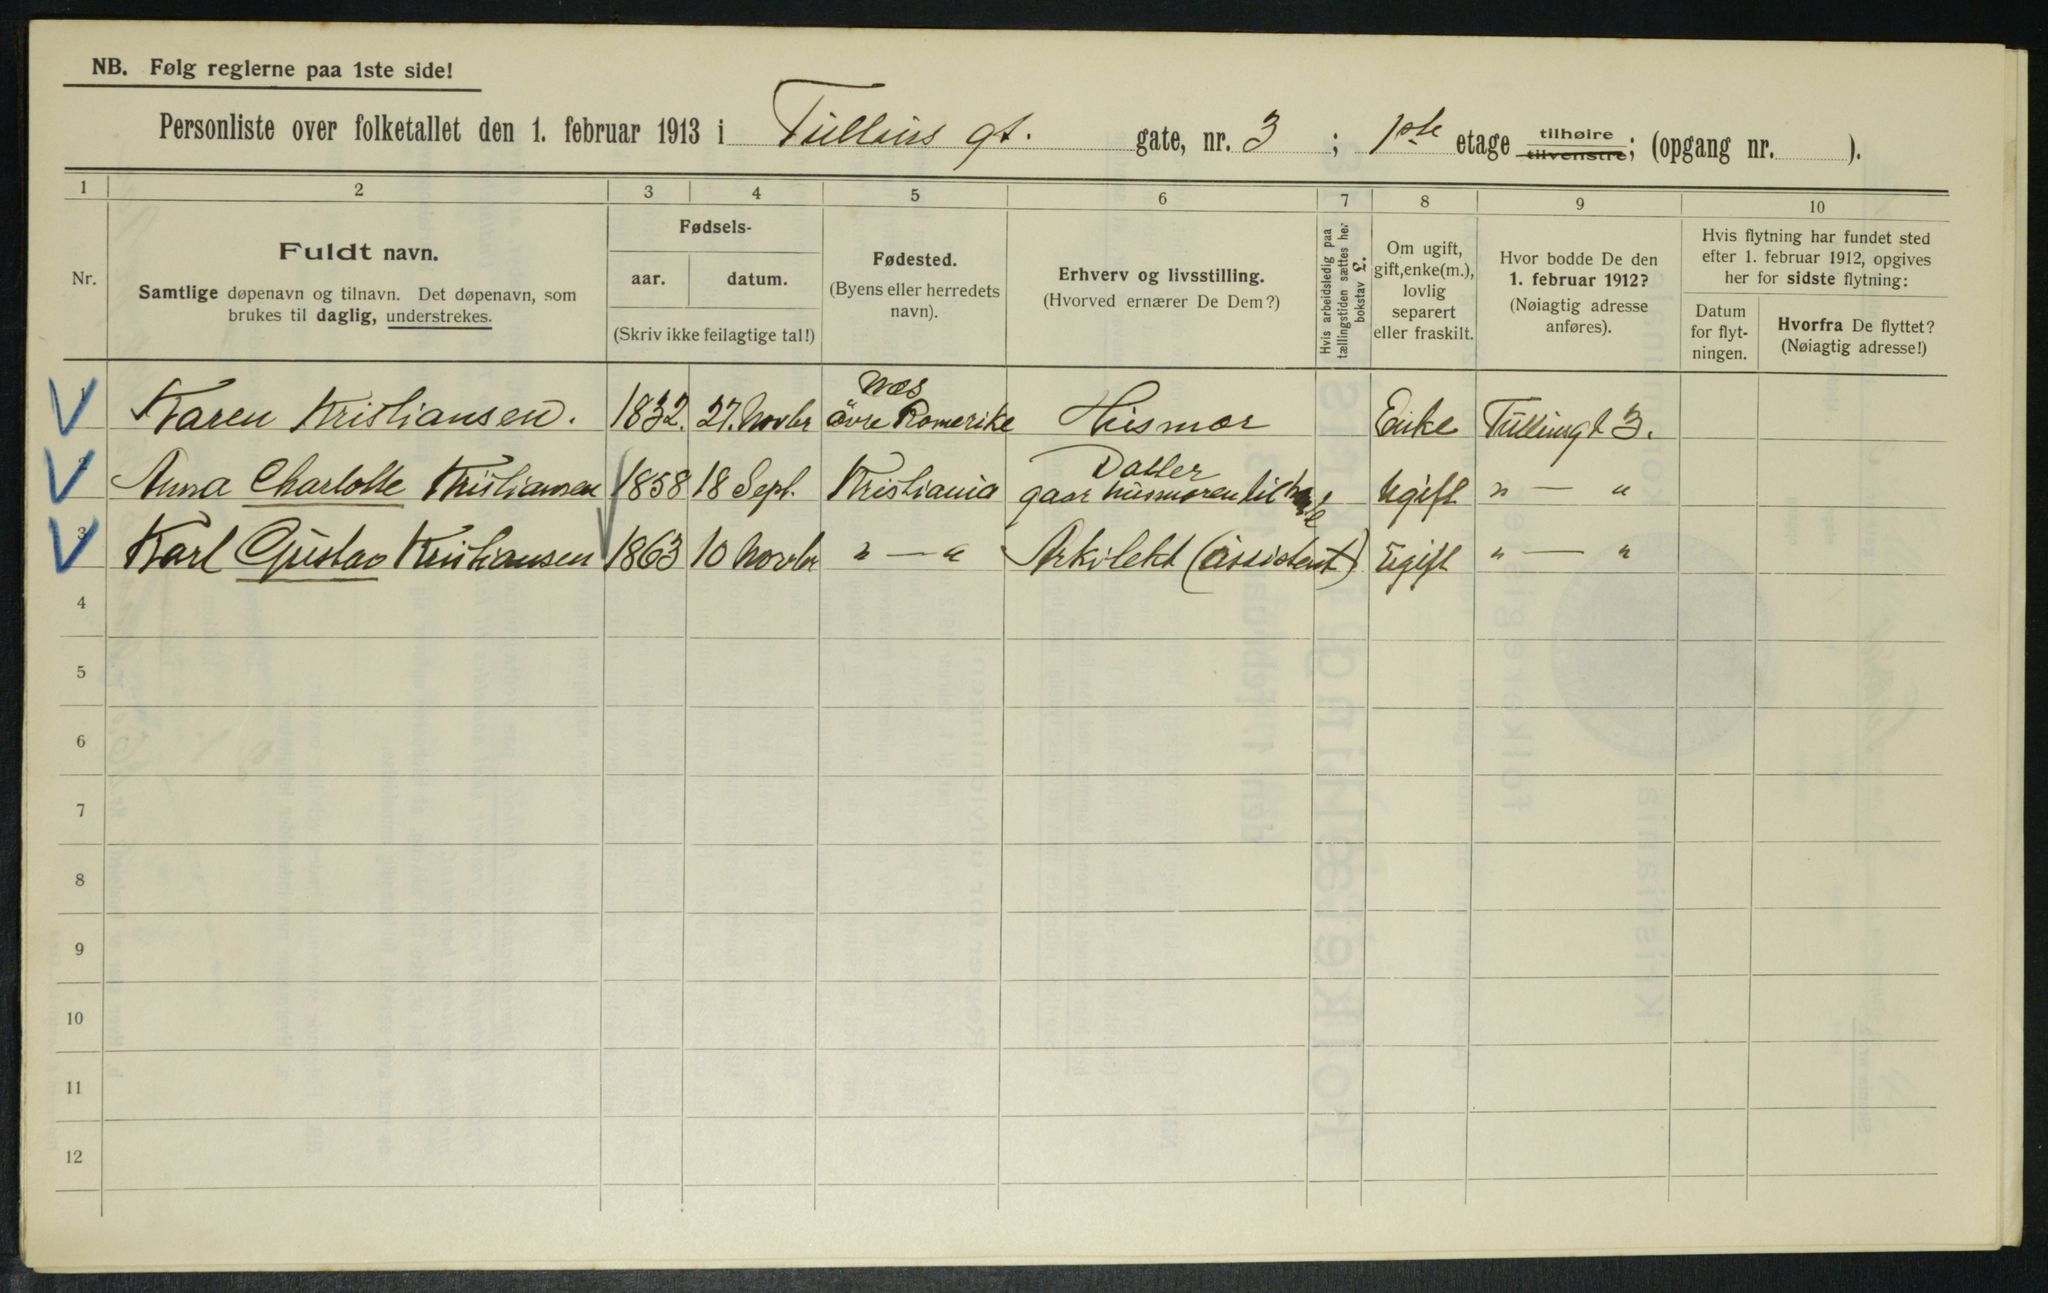 NB. Følg reglerne paa 1ste side!
Personliste over folketallet den 1. februar 1913 i Tullins gt. gate, nr. 3 ; 1ste etage tilhøire tilvenstre; (opgang nr. ).
1 2 3 4 5 6 7 8 9 10
Nr.
Fuldt navn.
Samtlige døpenavn og tilnavn. Det døpenavn, som
brukes til daglig, understrekes.
Fødsels-
aar. datum.
(Skriv ikke feilagtige tal!)
Fødested.
(Byens eller herredets
navn).
Erhverv og livsstilling.
(Hvorved ernærer De Dem?)
Hvis arbeidsledig paa
tællingstiden sættes her
bokstav L.
Om ugift,
gift, enke(m.),
lovlig
separert
eller fraskilt.
Hvor bodde De den
1. februar 1912?
(Nøiagtig adresse
anføres).
Hvis flytning har fundet sted
efter 1. februar 1912, opgives
her for sidste flytning:
Datum
for flyt-
ningen.
Hvorfra De flyttet?
(Nøiagtig adresse!)
Næs
1 Karen Kristiansen. 1832. 27. Novbr övre Romerike Husmor Enke Tullinsgt 3.
Datter
2 Anna Charlotte Kristiansen 1858 18 Sept. Kristiania gaar husmoren tilhande Ugift " — "
3 Karl Gustav Kristiansen 1863 10 Novbr " — " Arkitekt (assistent) Ugift " — "
4
5
6
7
8
9
10
11
12